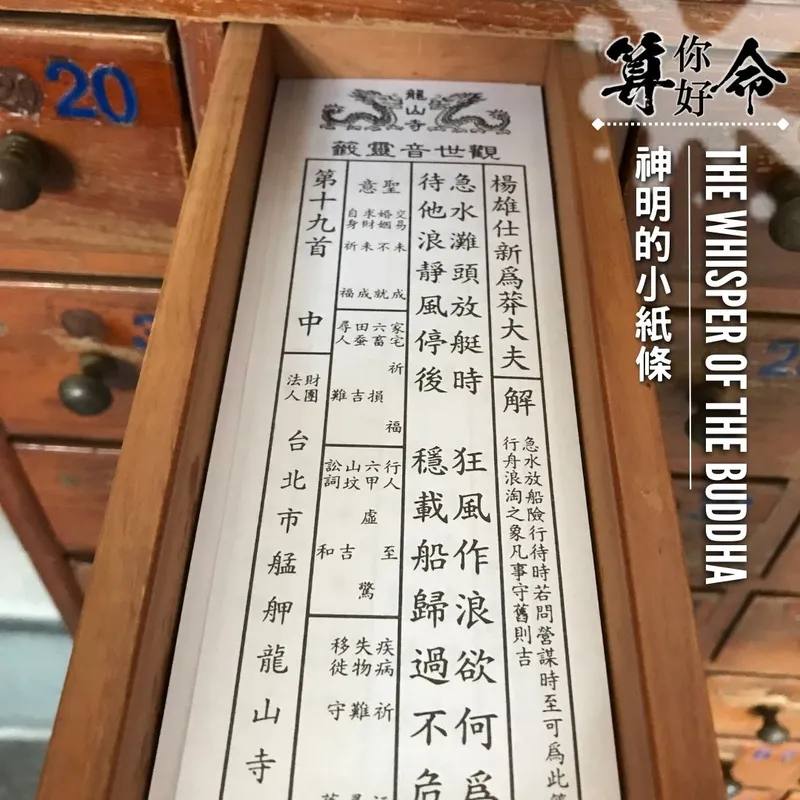 算命
你好
神明的小紙條
THE WHISPER OF THE BUDDHA
20
龍山寺
觀世音靈籤
楊雄仕新爲莽大夫
解
急水放船險行待時若問營謀時至可爲此
行舟浪淘之象凡事守舊則吉
急水灘頭放艇時 狂風作浪欲何爲
待他浪靜風停後 穩載船歸過不危
聖意
交易未成
婚姻不就
求財未成
自身祈福
家宅祈福
六畜損
田蚕吉
尋人難
行人至
六甲虛驚
山墳吉
訟詞和
疾病祈
失物難
移徙守
第十九首 中
財團法人
台北市艋舺龍山寺